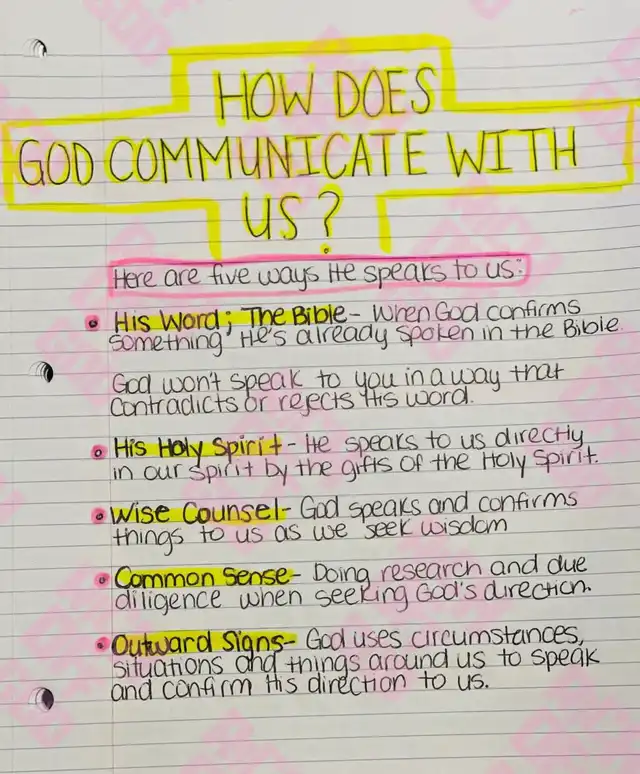 HOW DOES
GOD COMMUNICATE WITH
US?
Here are five ways He speaks to us:
• His Word; The Bible - When God confirms
something He's already spoken in the Bible.
God won't speak to you in a way that
contradicts or rejects His word.
• His Holy Spirit - He speaks to us directly
in our spirit by the gifts of the Holy Spirit.
• Wise Counsel- God speaks and confirms
things to us as we seek wisdom
• Common Sense- Doing research and due
diligence when seeking God's direction.
• Outward Signs- God uses circumstances,
situations and things around us to speak
and confirm His direction to us.